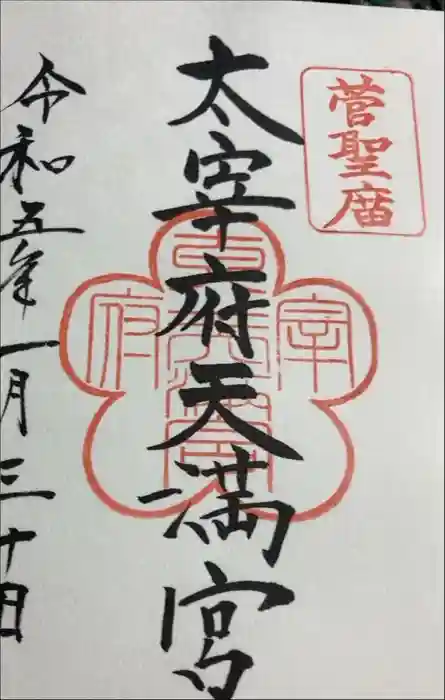 菅聖庿
太宰府天満宮
令和五年一月三十日